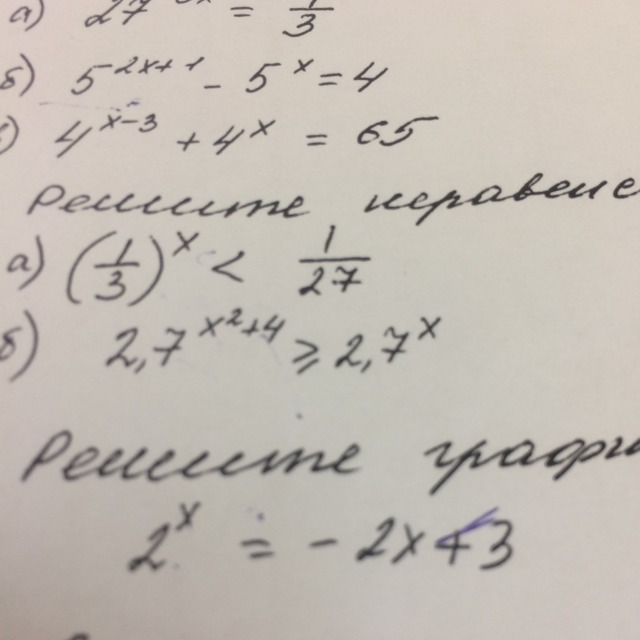 а) 27 = 1/3
б) 5^(2x+1) - 5^x = 4
4^(x-3) + 4^x = 65
Решите неравенс
а) (1/3)^x < 1/27
б) 2,7^(x²+4) ⩾ 2,7^x
Решите графи
2^x = - 2x + 3